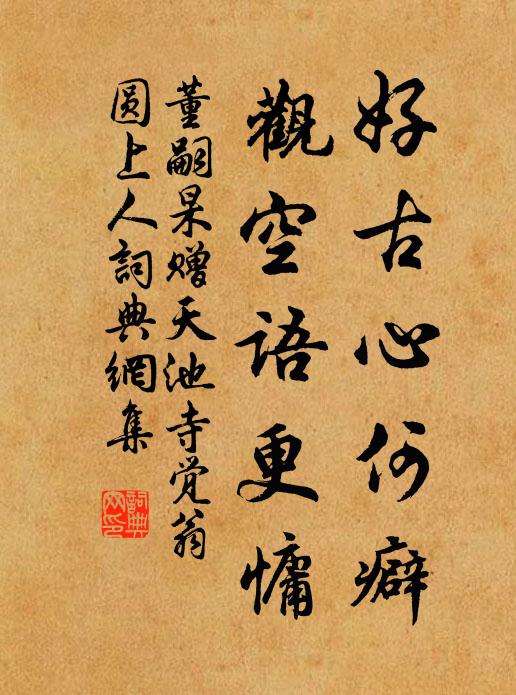 好古心何癖
觀空語更慵
董嗣杲赠天池寺觉翁
圆上人詞典網集
詞典
网印